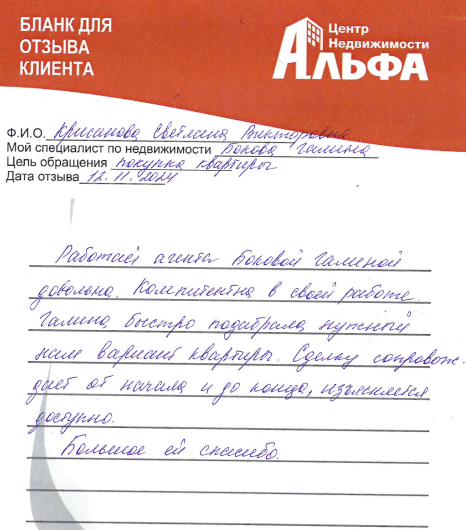 БЛАНК ДЛЯ
ОТЗЫВА
КЛИЕНТА
Центр
Недвижимости
АЛЬФА
Ф.И.О. Крисанова Светлана Викторовна
Мой специалист по недвижимости Бокова Галина
Цель обращения покупка квартиры
Дата отзыва 12.11.2024
Работой агента Боковой Галиной
довольна. Компитентна в своей работе.
Галина быстро подобрала нужный
нам вариант квартиры. Сделку сопровож-
дает от начала и до конца, изъясняется
доступно.
Большое ей спасибо.